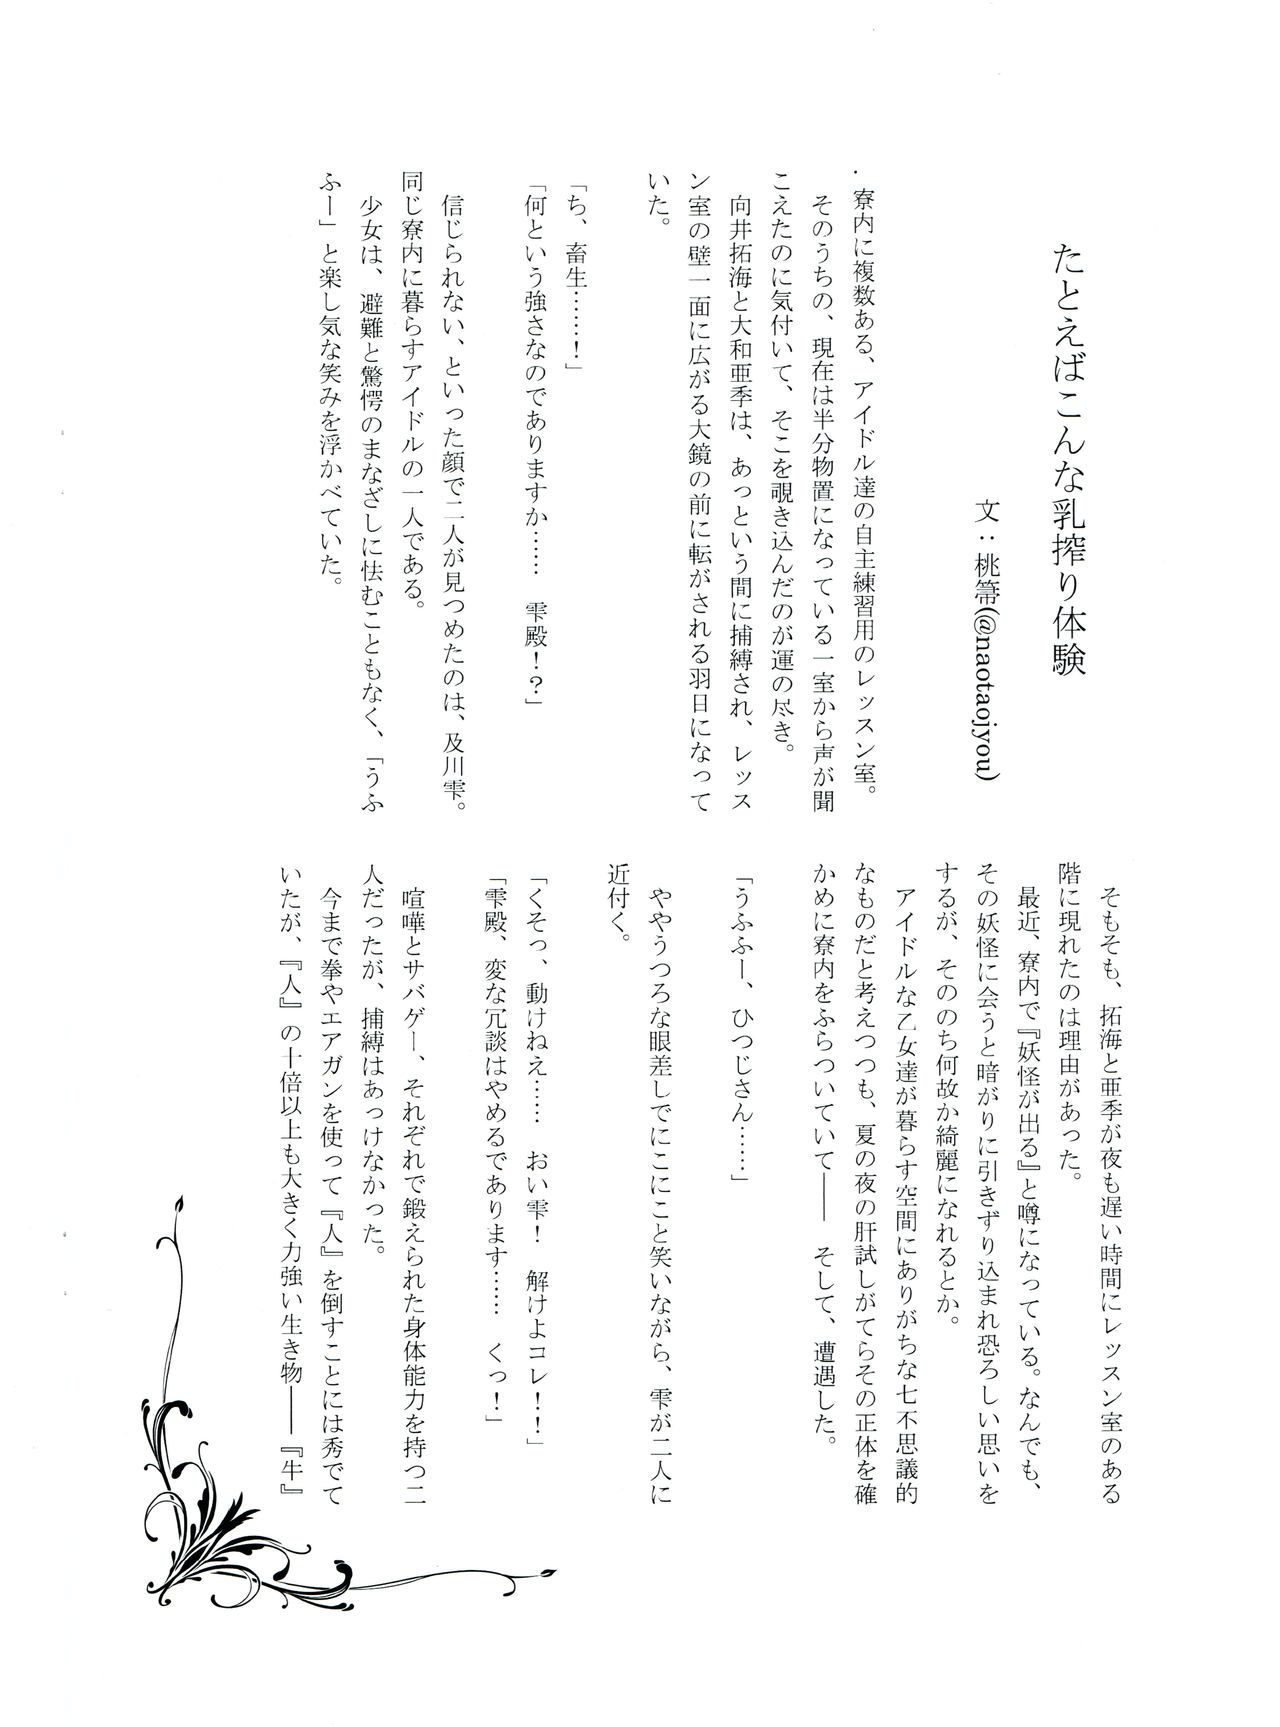 たとえばこんな乳搾り体験
文：桃箒(@naotaojyou)
．寮内に複数ある、アイドル達の自主練習用のレッスン室。
そのうちの、現在は半分物置になっている一室から声が聞
こえたのに気付いて、そこを覗き込んだのが運の尽き。
向井拓海と大和亜季は、あっという間に捕縛され、レッス
ン室の壁一面に広がる大鏡の前に転がされる羽目になって
いた。
「ち、畜生……！」
「何という強さなのでありますか……　雫殿！？」
信じられない、といった顔で二人が見つめたのは、及川雫。
同じ寮内に暮らすアイドルの一人である。
少女は、避難と驚愕のまなざしに怯むこともなく、「うふ
ふー」と楽し気な笑みを浮かべていた。
そもそも、拓海と亜季が夜も遅い時間にレッスン室のある
階に現れたのは理由があった。
最近、寮内で『妖怪が出る』と噂になっている。なんでも、
その妖怪に会うと暗がりに引きずり込まれ恐ろしい思いを
するが、そののち何故か綺麗になれるとか。
アイドルな乙女達が暮らす空間にありがちな七不思議的
なものだと考えつつも、夏の夜の肝試しがてらその正体を確
かめに寮内をふらついていて――　そして、遭遇した。
「うふふー、ひつじさん……」
ややうつろな眼差しでにこにこと笑いながら、雫が二人に
近付く。
「くそっ、動けねえ……　おい雫！　解けよコレ！！」
「雫殿、変な冗談はやめるであります……　くっ！」
喧嘩とサバゲー、それぞれで鍛えられた身体能力を持つ二
人だったが、捕縛はあっけなかった。
今まで拳やエアガンを使って『人』を倒すことには秀でて
いたが、『人』の十倍以上も大きく力強い生き物――『牛』